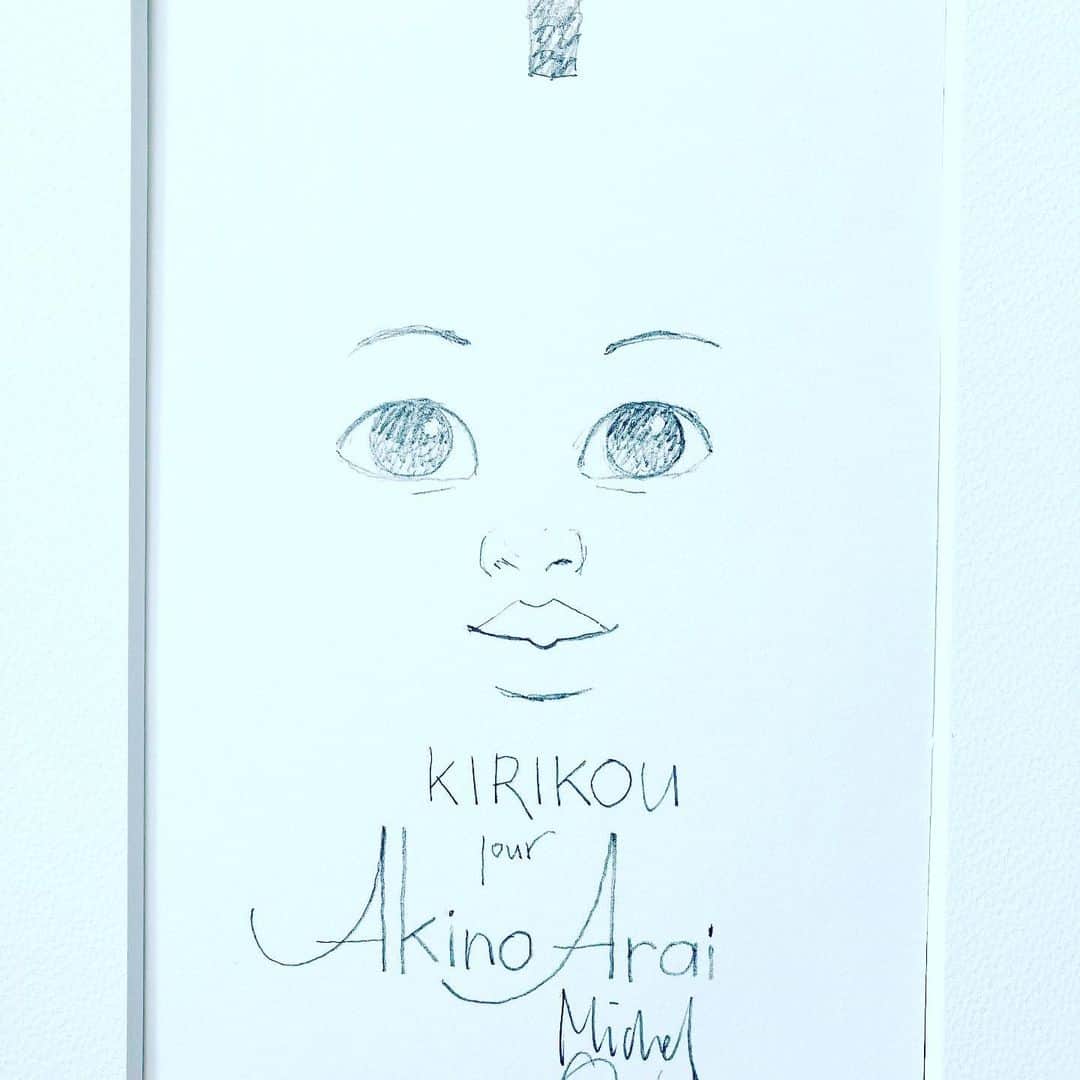 KIRIKOU
pour
Akino Arai
Michel